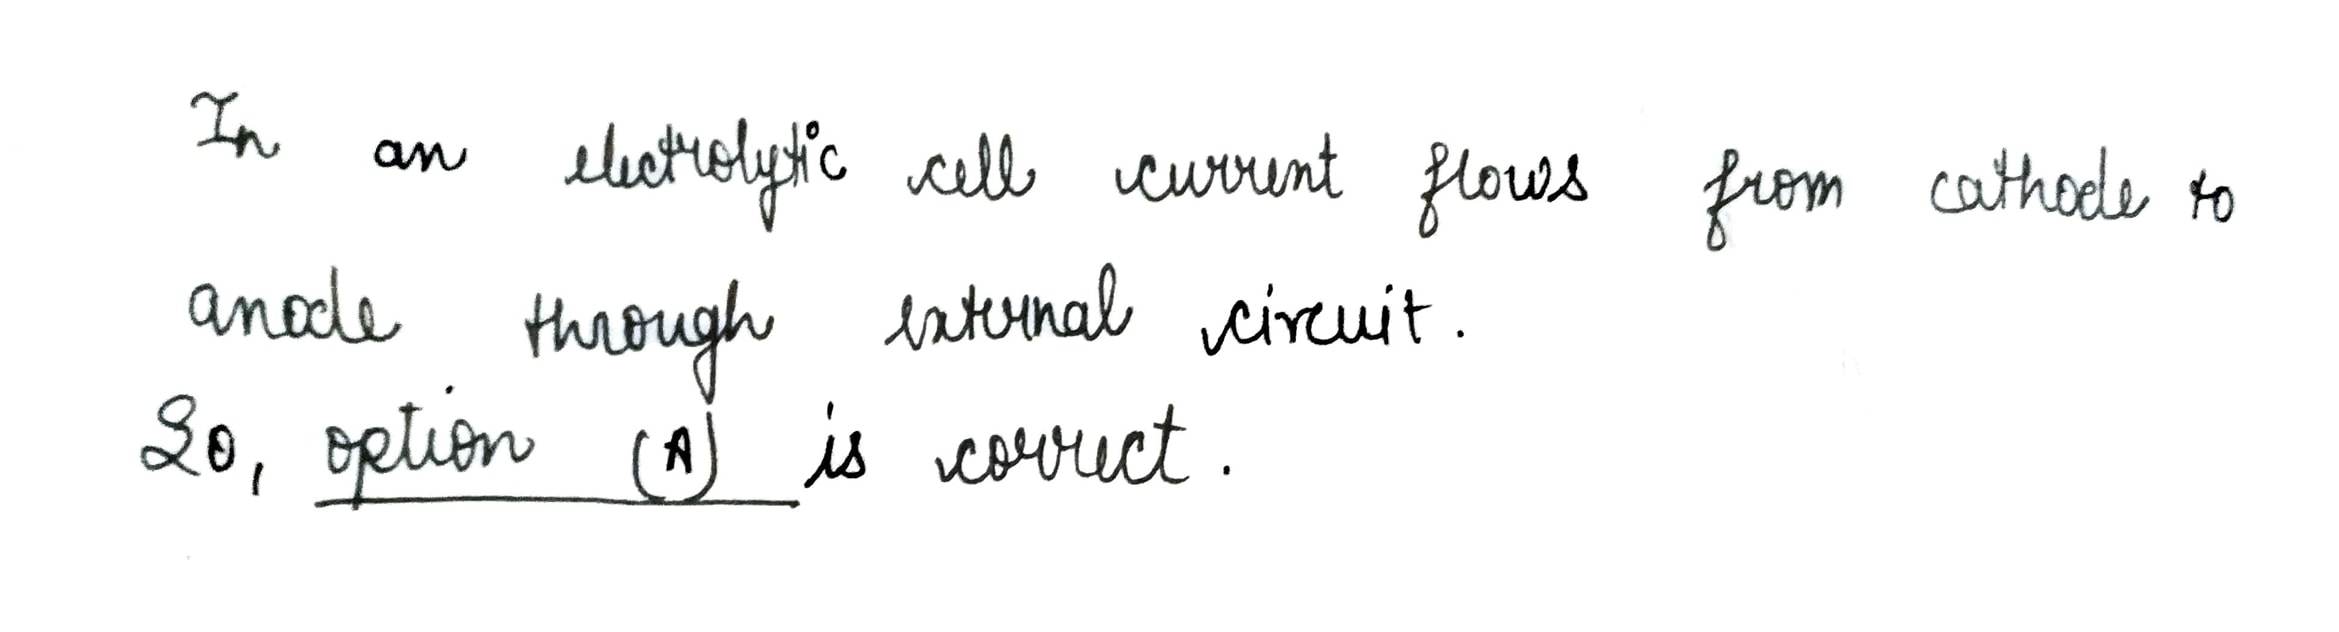 In an electrolytic cell current flows from cathode to
anode through external circuit.
So, option (A) is correct.